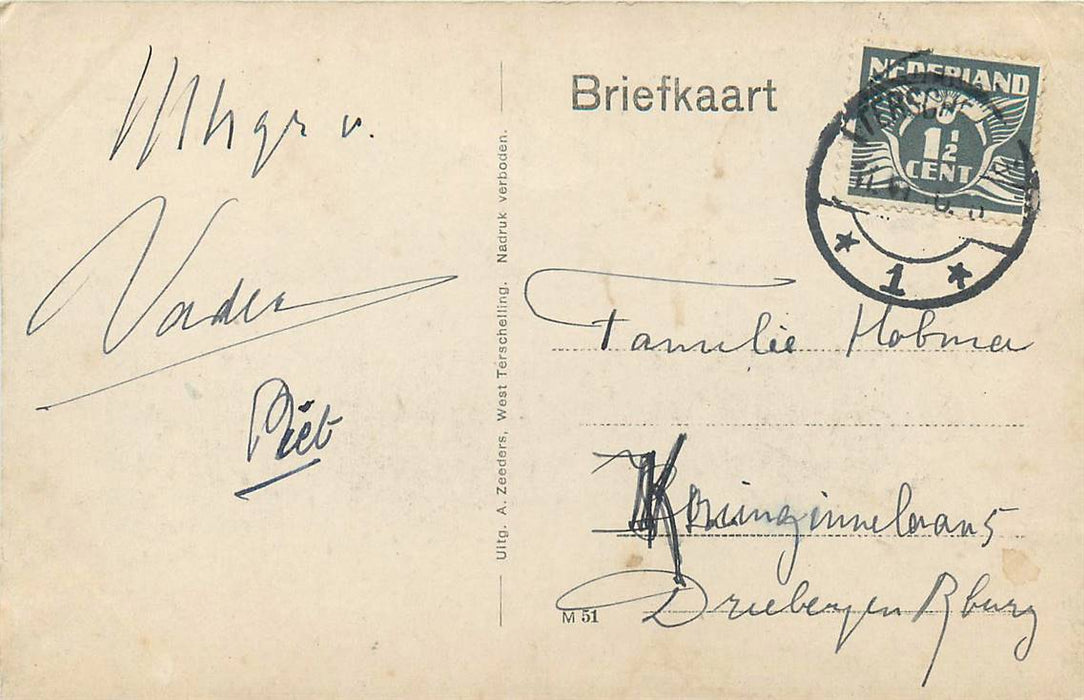 M hgr v.
Vader
Piet
Uitg. A. Zeeders, West Terschelling. Nadruk verboden.
Briefkaart
NEDERLAND
1½
CENT
1
Familie Hobma
Koninginnelaan 5
Driebergen Rburg
M 51